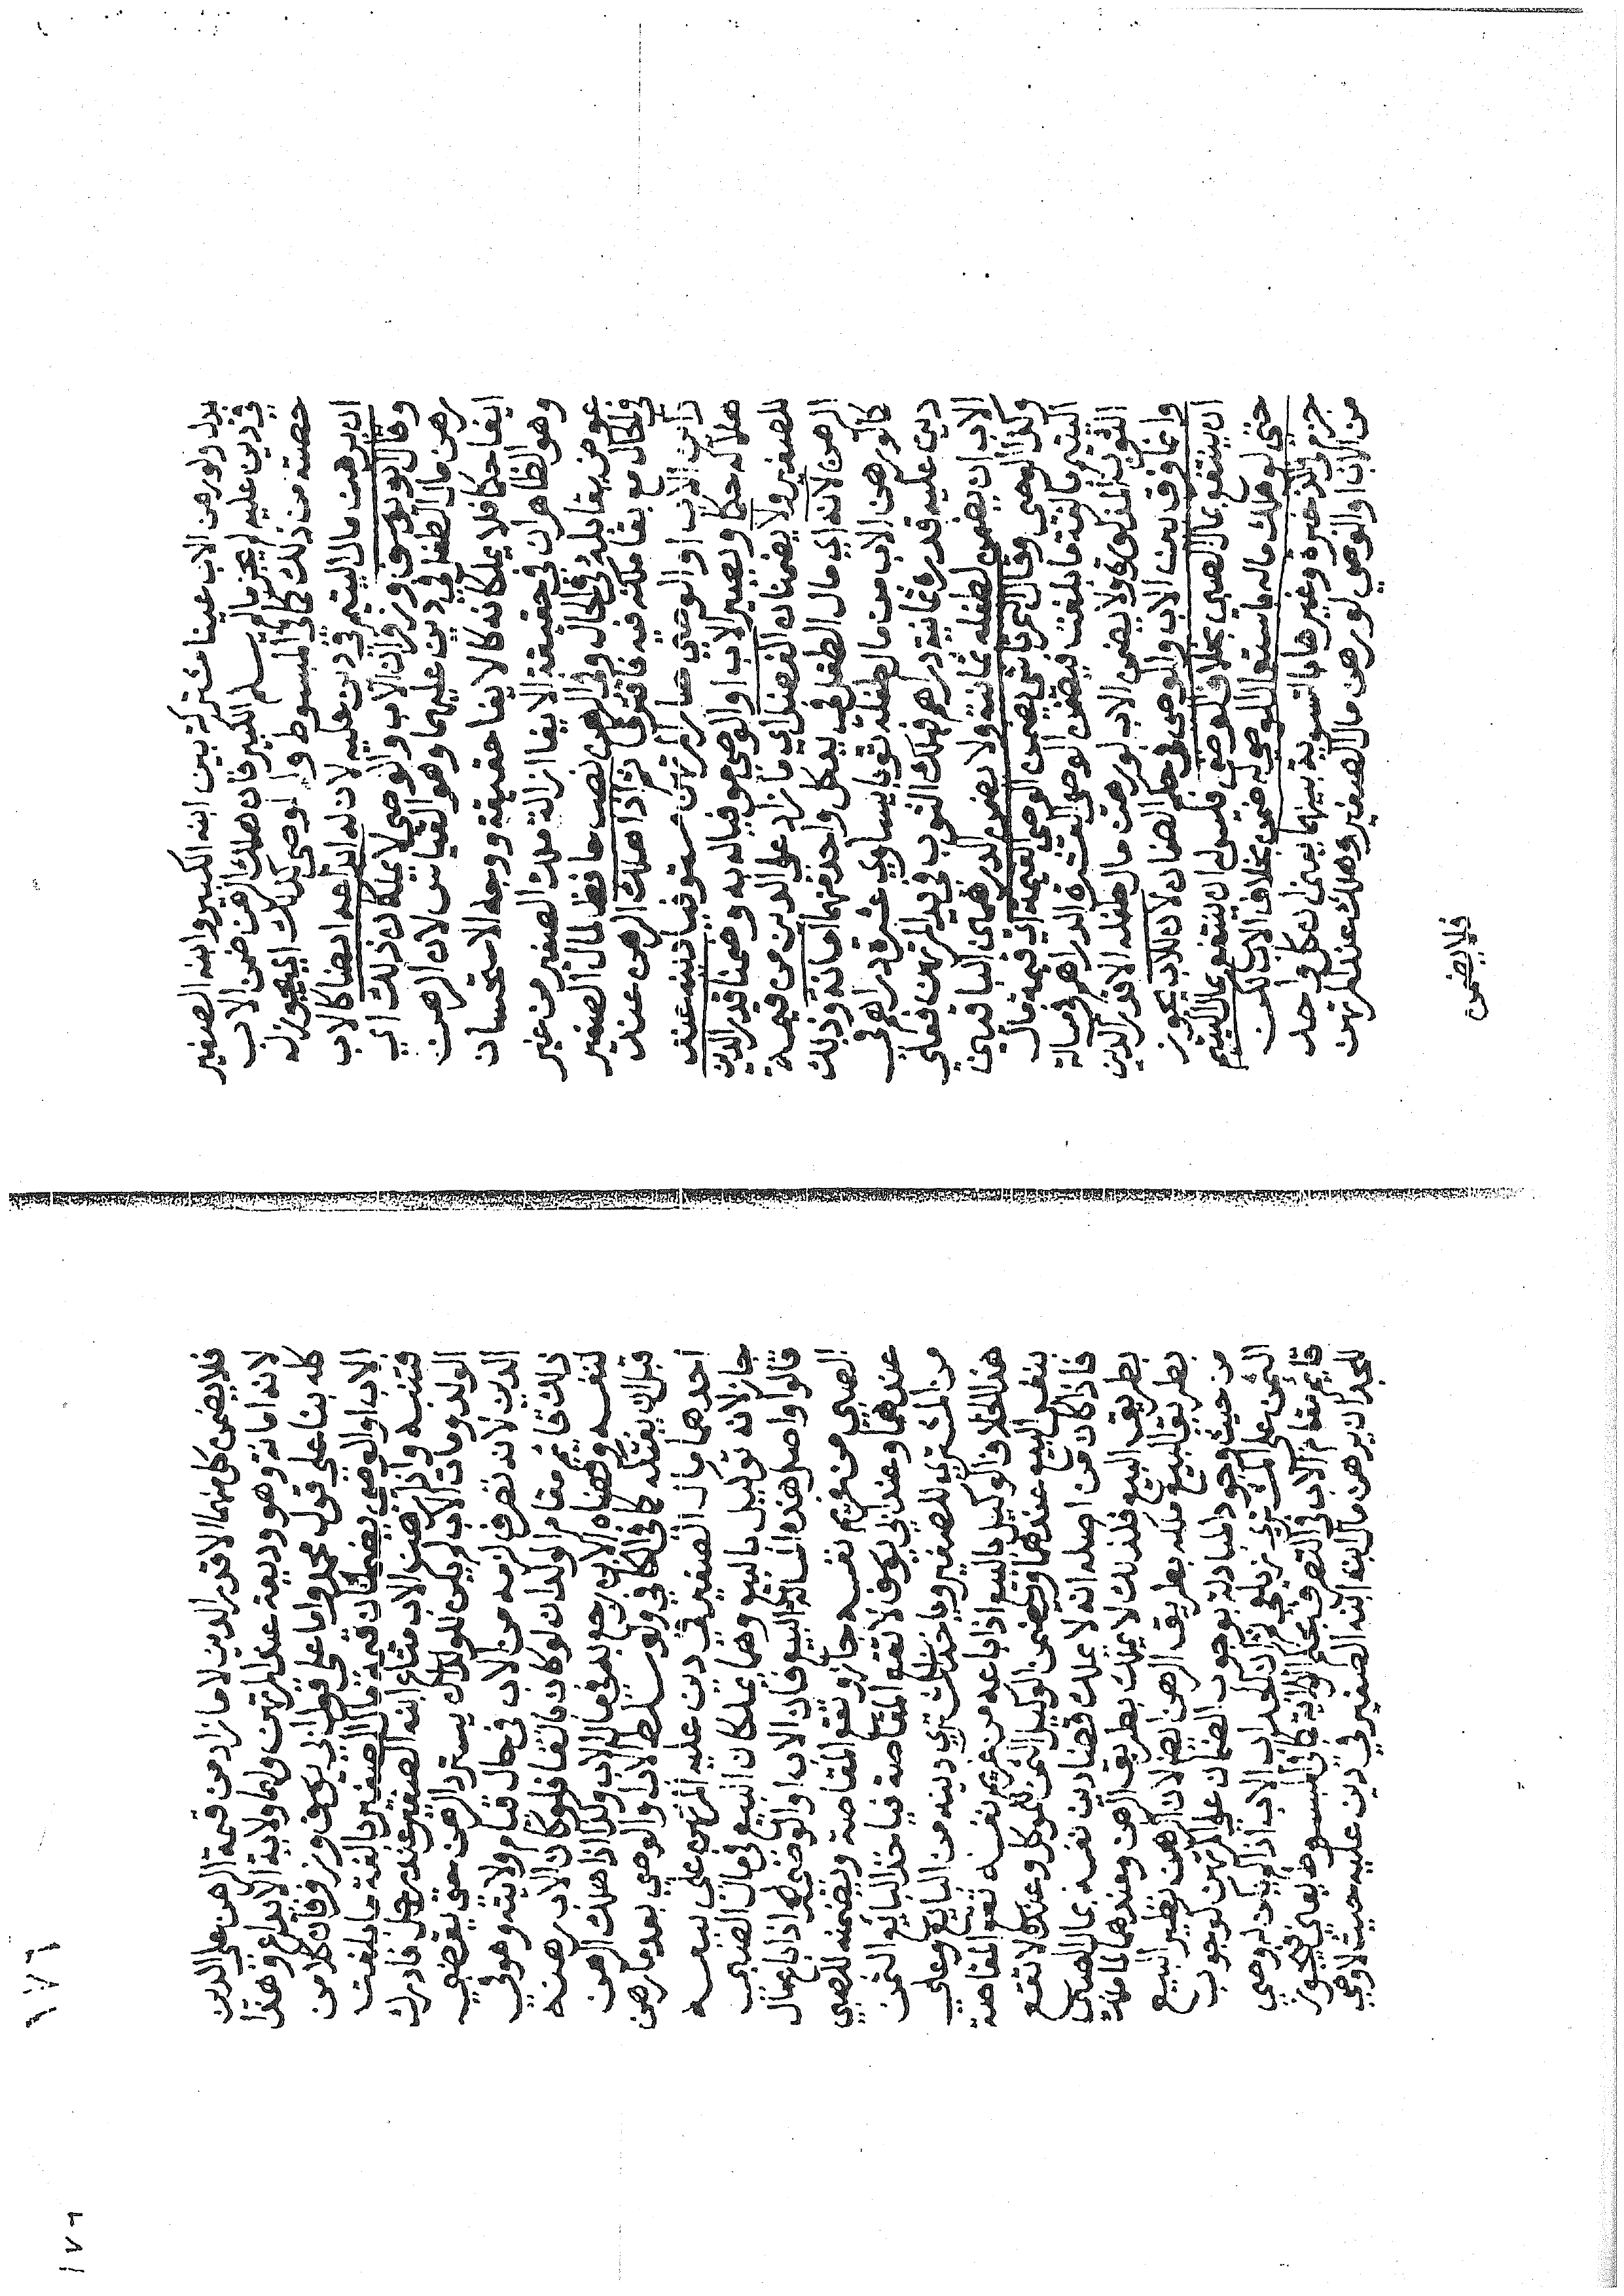 بدل ولو رهن الاب عينا مشتركة بين ابنه الكبير وابنه الصغير
في دين عليه لم يجز ما لم يسلم الكبير فان هلك الرهن ضمن الاب
حصته من ذلك كما في المبسوط والوصي كذلك اي يجوز له
ان يرهن مال اليتيم في دين عليه لان له ايداعه ايضا كالاب
وقال ابو يوسف وزفر ان الاب والوصي لا يملكان ذلك اي
رهن مال الطفل في دين عليهما وهو القياس لان الرهن
ايفا حكما فلا يملكانه كالايفا حقيقة ووجه الاستحسان
وهو الظاهر ان في حقيقة الايفا ازالة ملك الصغير من غير
عوض يقابله في الحال وفي الرهن نصب حافظ لمال الصغير
في الحال مع بقا ملكه فيه فافترقا ثم اذا هلك الرهن عند
دائن الاب او الوصي صار المرتهن مستوفيا دينه عند
هلاكه حكما ويصير الاب او الوصي موفيا له به وضمنا قدر الدين
للصغير ولا يضمنانه الفضل اي ما زاد على الدين من قيمة
الرهن لانه اي مال الطفل في يد كل واحد منهما امانة وذلك
كالو رهن الاب من مال طفله ثوبا يساوي عشرة دراهم في
دين عليه قدره ثمانية دراهم فهلك الثوب في يد المرتهن فعلي
الاب ان يضمن لطفله ثمانية ولا يضمن الدرهمين الباقيين
وكذا الوصي وقال التمرتاشي يضمن الوصي القيمة اي قيمة مال
اليتيم بالغة ما بلغت فيضمن الوصي العشرة الدراهم في مسالة
الثوب المذكورة ولا يضمن الاب لو رهن مال طفله الا قدر الدين
وانما فرق بين الاب والوصي في حكم الضمان لان للاب يجوز
ان ينتفع بمال الصبي بخلاف الوصي فليس له ان ينتفع بمال اليتيم
حتي لو هلك ماله باستعمال الوصي له ضمن بخلاف الاب لكن
جزم في الذخيرة وغيرها بالتسوية بينهما يعني ان كل واحد
من الاب او الوصي لو رهن مال الصغير وهلك عند المرتهن
فلا يضمن
١٧٦
١٧٦
فلا يضمن كل منهما الا قدر الدين لا ما زاد من قيمة الرهن علي الدين
لانه امانة وهو وديعة عند المرتهن ولهما ولاية الايداع وهذا
كله بنا علي قول محمد واما علي قول ابي يوسف وزفر فان كلا من
الاب او الوصي يضمنان قيمة مال الصغير بالغة ما بلغت
فتنبه ولو رهن الاب متاع ابنه الصغير عند رجل فادرك
الولد ومات الاب لم يكن للولد ان يسترد الرهن حتى يقضي
الدين لانه تصرف لزمه من الاب في حال قيام ولايته وهو في
ذلك قايم مقام الولد ان لو كان بالغا فلو كان الاب رهنه
لنفسه وقضاه الابن رجع به في مال الاب وكذا اذا هلك الرهن
قبل ان يفتكه كما في الكافي ولو سلط الاب او الوصي بعد ما رهن
احدهما مال الصغير في دين عليه المرتهن علي بيعه
جاز لانه توكيل بالبيع وهما يملكان البيع في مال الصبي
قالوا واصل هذه المسالة البيع فان الاب او الوصي اذا باع مال
الصبي من غريم نفسه جاز وتقع المقاصة ويضمنه للصبي
عندهما وعند ابي يوسف لا تقع المقاصة فياخذ البايع الثمن
من المشتري للصغير وياخذ المشتري دينه من البايع وعلي
هذا الخلاف الوكيل بالبيع اذا باعه من غريم نفسه تقع المقاصة
بنفس البيع عندهما ويضمن الوكيل الثمن للموكل وعنده لا تقع
فاذا كان من اصله انه لا يملك قضا دين نفسه بمال الصبي
بطريق البيع فلذلك لا يملك بطريق الرهن وعندهما لما ملك
بطريق البيع ملكه بطريق الرهن ايضا لان الرهن نظير البيع
من حيث وجود المبادلة بوجوب الضمان علي المرتهن كوجوب
الثمن علي المشتري زيلعي ثم ان اب الاب اذا لم يكن له وصي
قايم مقام الاب في التصرف بحكم الولاية كما في المبسوط يعني فيجوز
للجد ان يرهن مال ابن ابنه الصغير في دين عليه حيث لا وصي